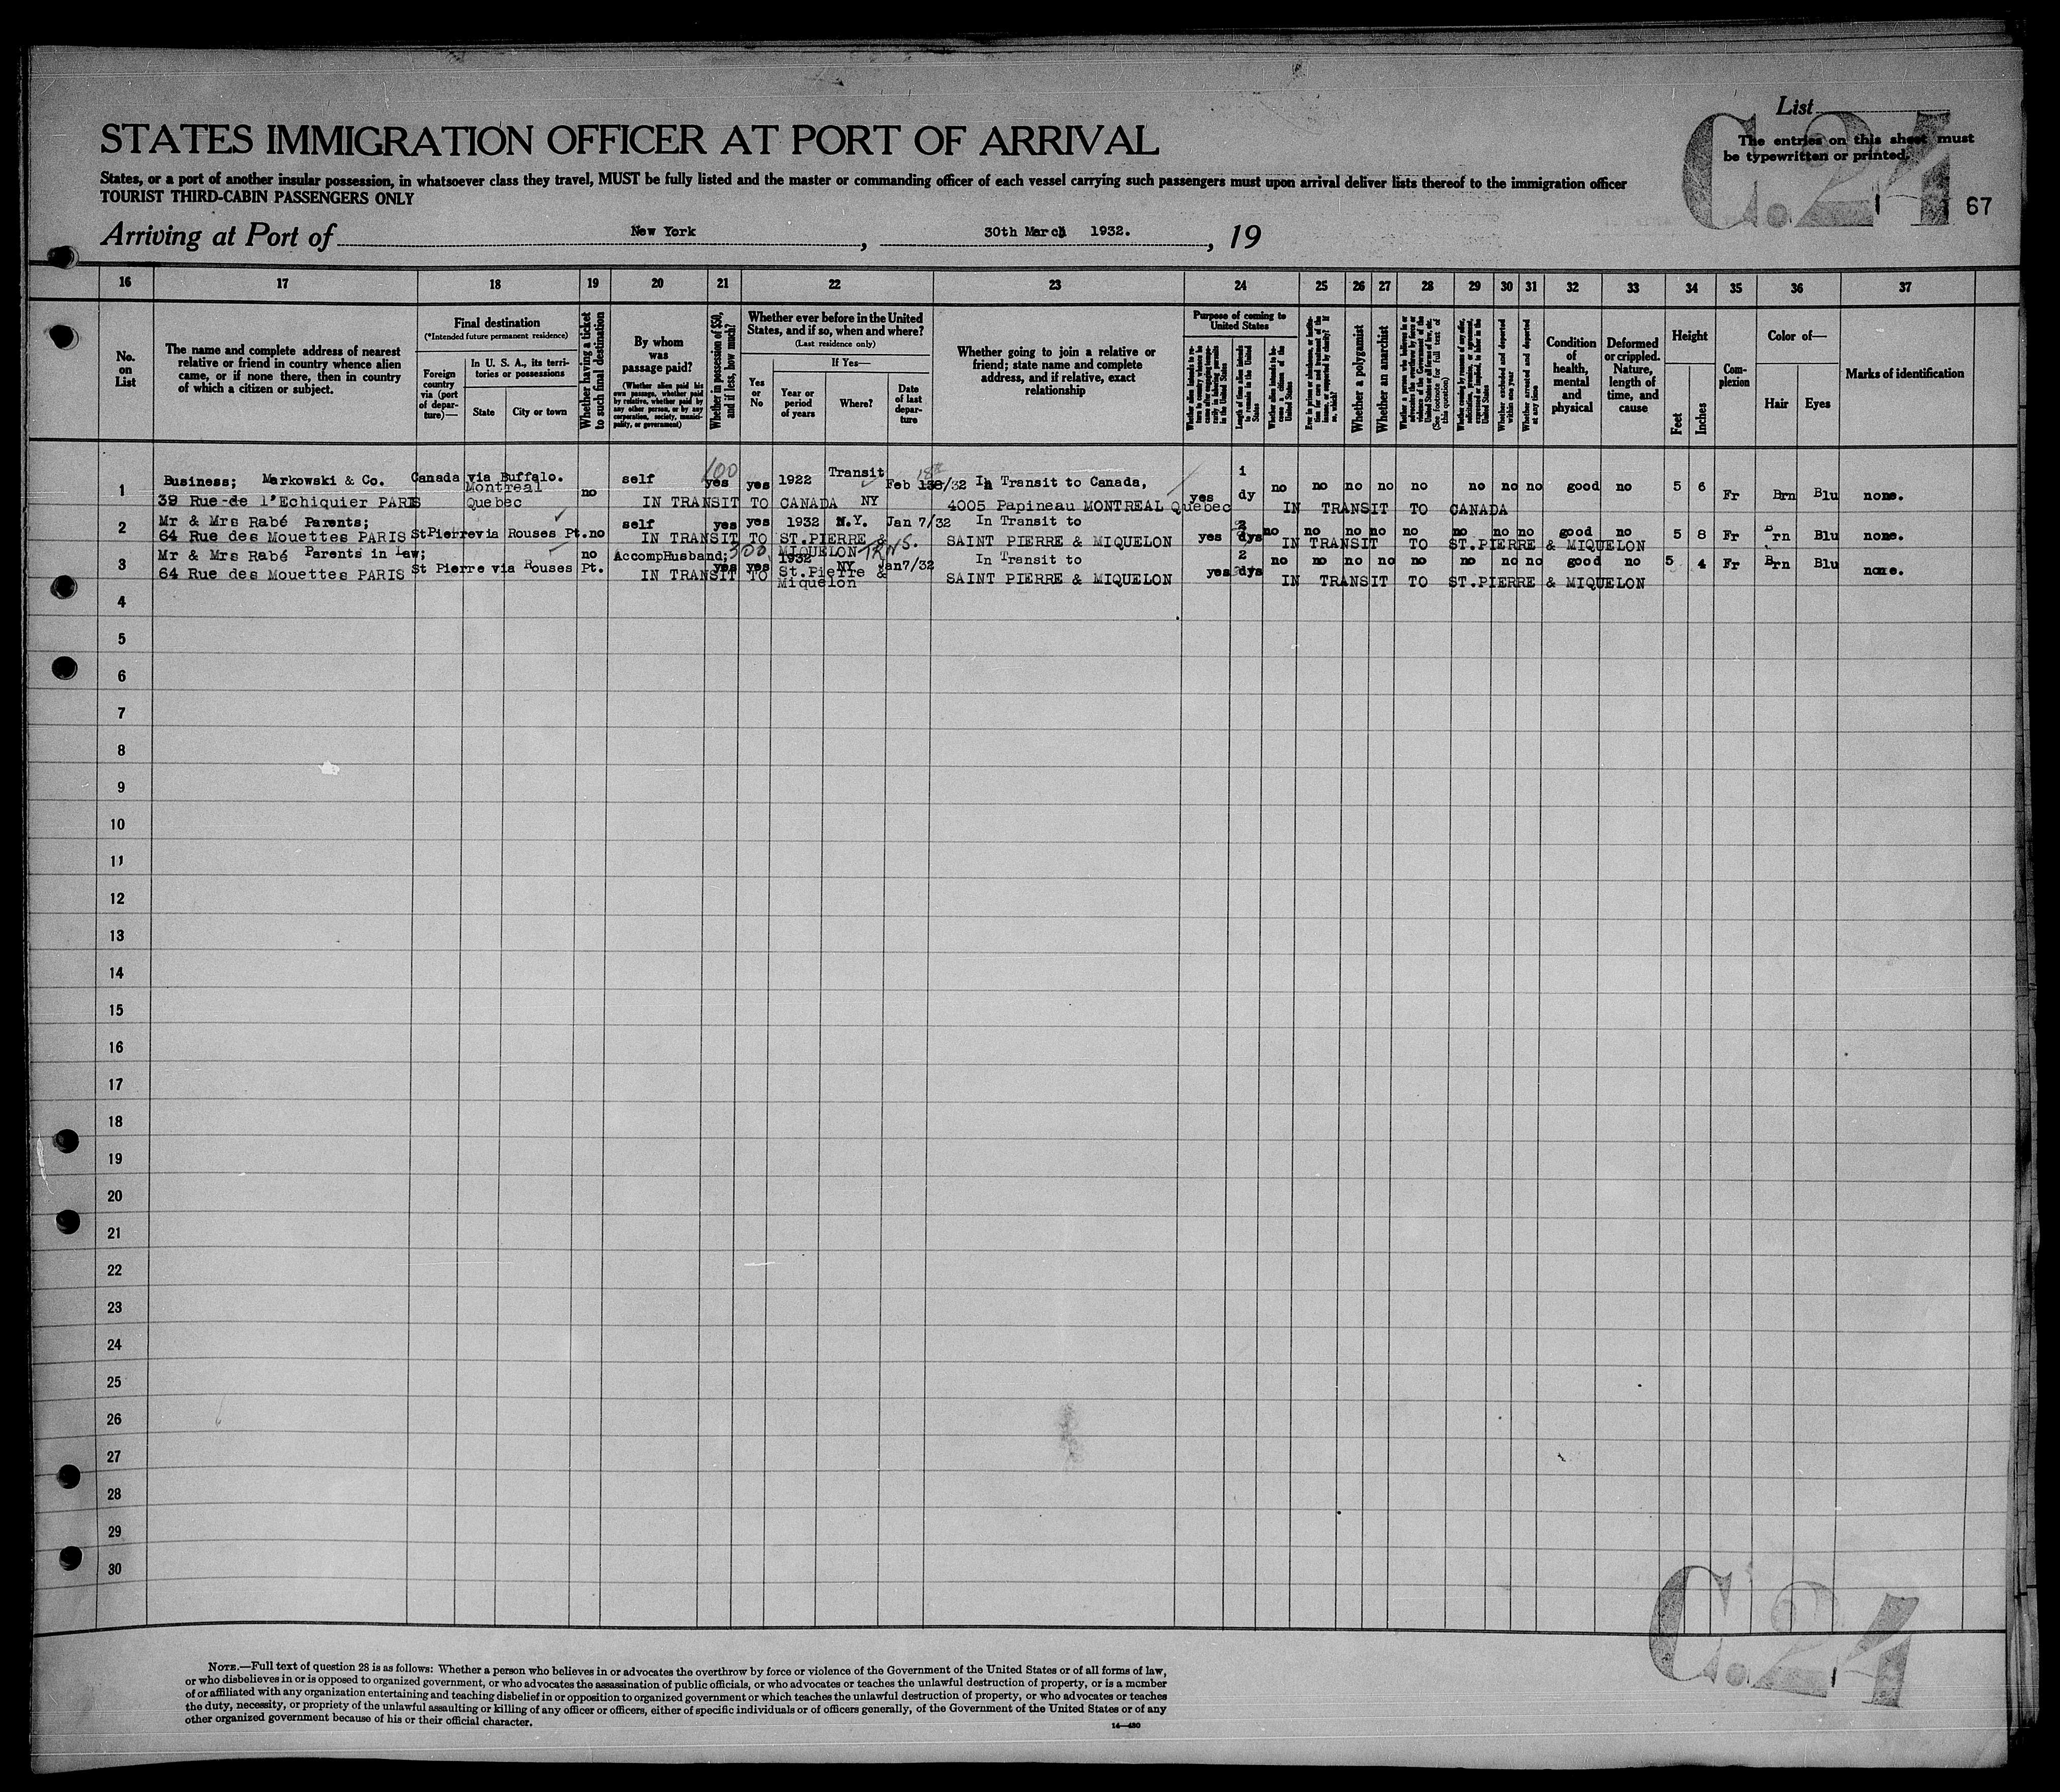 List
C.24
The entries on this sheet must
be typewritten or printed.
67
STATES IMMIGRATION OFFICER AT PORT OF ARRIVAL
States, or a port of another insular possession, in whatsoever class they travel, MUST be fully listed and the master or commanding officer of each vessel carrying such passengers must upon arrival deliver lists thereof to the immigration officer
TOURIST THIRD-CABIN PASSENGERS ONLY
Arriving at Port of New York , 30th March 1932. , 19
16 17 18 19 20 21 22 23 24 25 26 27 28 29 30 31 32 33 34 35 36 37
No. on List
The name and complete address of nearest
relative or friend in country whence alien
came, or if none there, then in country
of which a citizen or subject.
Final destination
(*Intended future permanent residence)
Foreign
country
via (port
of depar-
ture)—
In U. S. A., its terri-
tories or possessions
State
City or town
Whether having a ticket
to such final destination
By whom
was
passage paid?
(Whether alien paid his
own passage, whether paid
by relative, whether paid by
any other person, or by any
corporation, society, munici-
pality, or government)
Whether in possession of $50,
and if less, how much?
Whether ever before in the United
States, and if so, when and where?
(Last residence only)
Yes
or
No
If Yes—
Year or
period
of years
Where?
Date
of last
depar-
ture
Whether going to join a relative or
friend; state name and complete
address, and if relative, exact
relationship
Purpose of coming to
United States
Length of time alien intends
to remain in the United
States
Whether alien intends to be-
come a citizen of the
United States
Whether a polygamist
Whether an anarchist
(See footnote for full text of
this question)
Whether excluded and deported
within one year
Whether arrested and deported
at any time
Condition
of
health,
mental
and
physical
Deformed
or crippled.
Nature,
length of
time, and
cause
Height
Feet
Inches
Com-
plexion
Color of—
Hair
Eyes
Marks of identification
1
Business; Markowski & Co. Canada via Buffalo. self 100 yes yes 1922 Transit In Transit to Canada, 1
39 Rue de l'Echiquier PARIS Montreal Quebec no IN TRANSIT TO CANADA NY 4005 Papineau MONTREAL Quebec yes dy no no no no no no no no good no 5 6 Fr Brn Blu none.
IN TRANSIT TO CANADA
2
Mr & Mrs Rabé Parents; self yes yes 1932 N.Y. Jan 7/32 In Transit to
64 Rue des Mouettes PARIS St Pierre via Rouses Pt. no IN TRANSIT TO ST.PIERRE & MIQUELON SAINT PIERRE & MIQUELON yes dys no no no no no no no no good no 5 8 Fr Brn Blu none.
300 TRNS.
IN TRANSIT TO ST.PIERRE & MIQUELON
3
Mr & Mrs Rabé Parents in Law; no AccompHusband; yes yes 1932 NY Jan7/32 In Transit to 2
64 Rue des Mouettes PARIS St Pierre via Rouses Pt. IN TRANSIT TO St.Pierre & Miquelon SAINT PIERRE & MIQUELON yes dys no no no no no no no no good no 5 4 Fr Brn Blu none.
IN TRANSIT TO ST.PIERRE & MIQUELON
4
5
6
7
8
9
10
11
12
13
14
15
16
17
18
19
20
21
22
23
24
25
26
27
28
29
30
C.24
NOTE.—Full text of question 28 is as follows: Whether a person who believes in or advocates the overthrow by force or violence of the Government of the United States or of all forms of law,
or who disbelieves in or is opposed to organized government, or who advocates the assassination of public officials, or who advocates or teaches the unlawful destruction of property, or is a member
of or affiliated with any organization entertaining and teaching disbelief in or opposition to organized government or which teaches the unlawful destruction of property, or who advocates or teaches
the duty, necessity, or propriety of the unlawful assaulting or killing of any officer or officers, either of specific individuals or of officers generally, of the Government of the United States or of any
other organized government because of his or their official character.
14—430